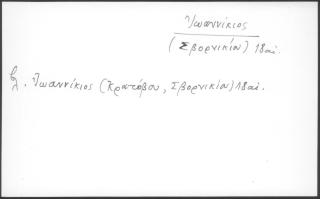 Ἰωαννίκιος
(Σβορνικίου) 18αἰ.
βλ. Ἰωαννίκιος (Κρατόβου, Σβορνικίου) 18αἰ.